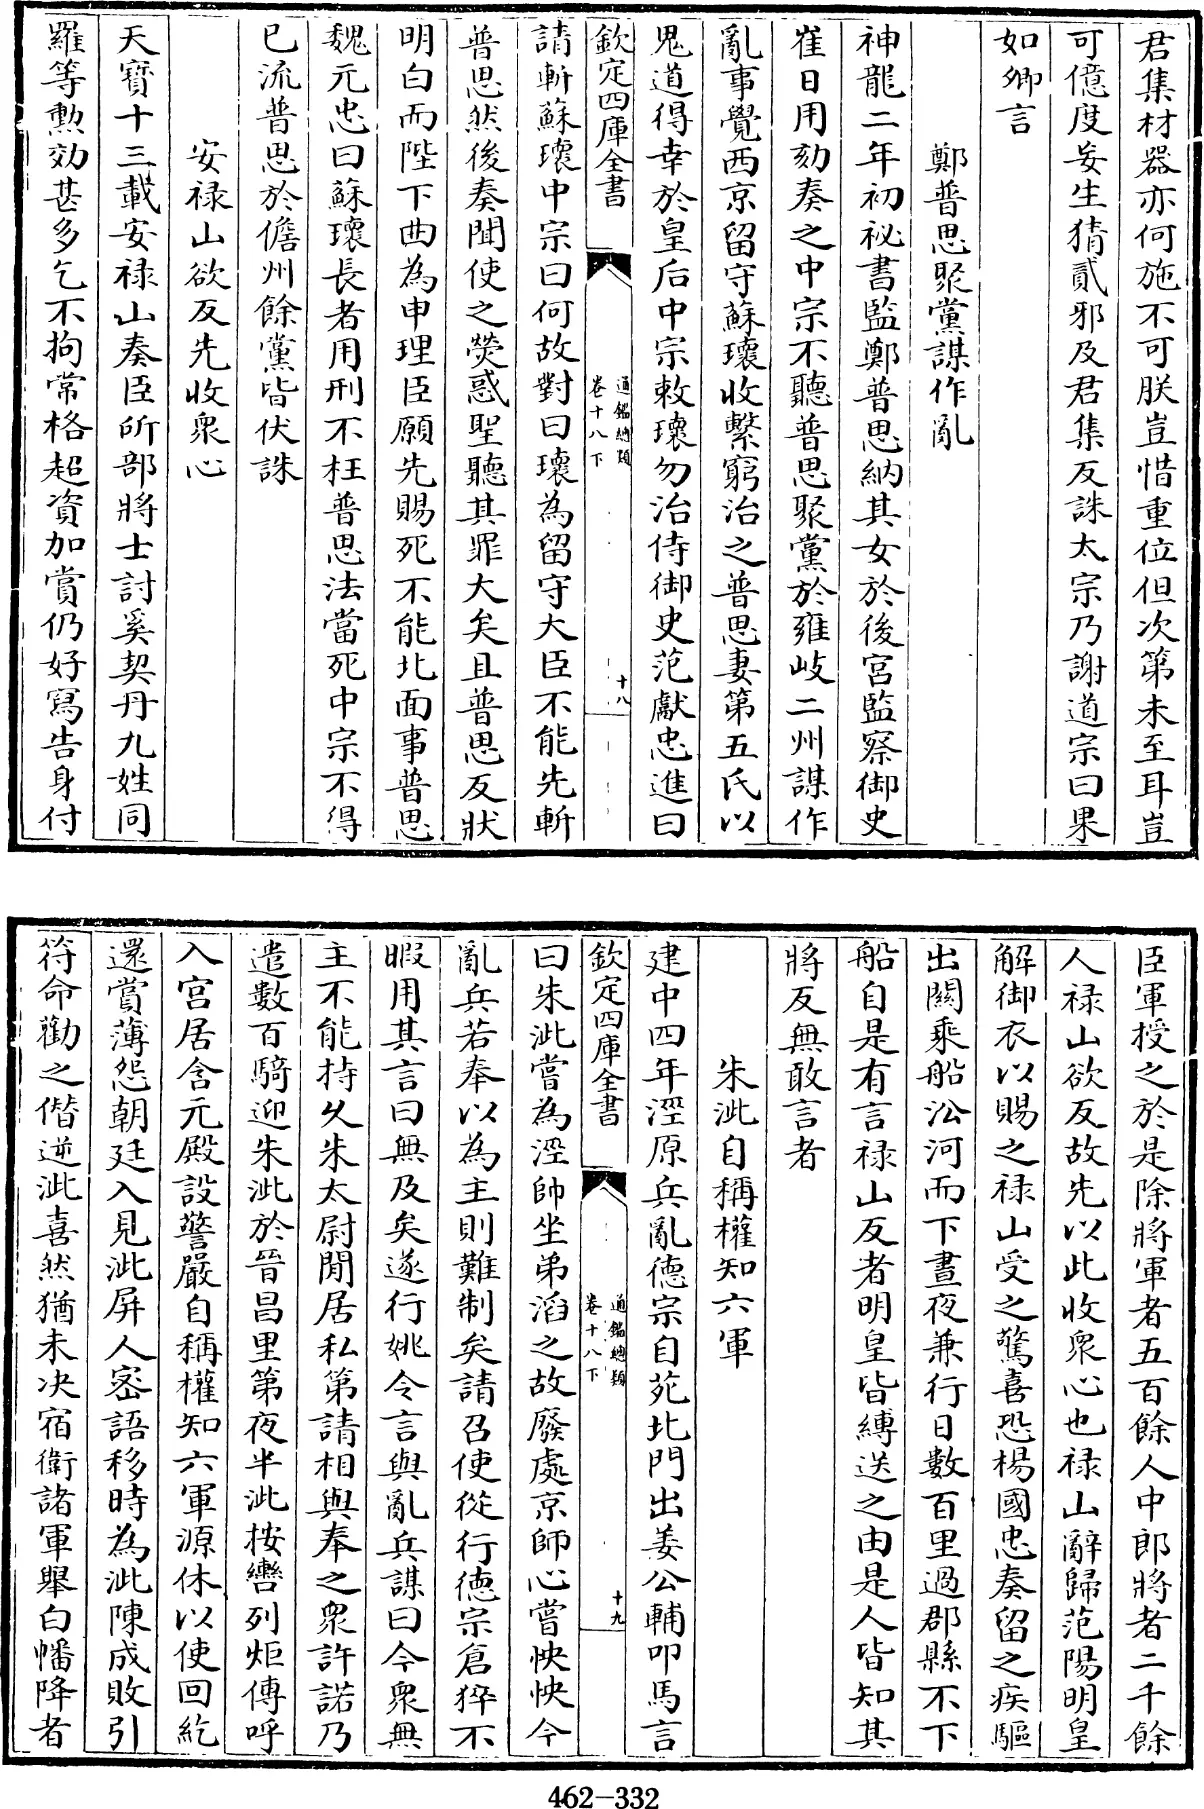 君集材器亦何施不可朕豈惜重位但次第未至耳豈
可億度妄生猜貳邪及君集反誅太宗乃謝道宗曰果
如卿言
鄭普思聚黨謀作亂
神龍二年初祕書監鄭普思納其女於後宮監察御史
崔日用劾奏之中宗不聽普思聚黨於雍岐二州謀作
亂事覺西京留守蘇瓌收繫窮治之普思妻第五氏以
鬼道得幸於皇后中宗敕瓌勿治侍御史范獻忠進曰
欽定四庫全書
通鑑總類
卷十八下
十八
請斬蘇瓌中宗曰何故對曰瓌為留守大臣不能先斬
普思然後奏聞使之熒惑聖聽其罪大矣且普思反狀
明白而陛下曲為申理臣願先賜死不能北面事普思
魏元忠曰蘇瓌長者用刑不枉普思法當死中宗不得
已流普思於儋州餘黨皆伏誅
安禄山欲反先收衆心
天寶十三載安禄山奏臣所部將士討奚契丹九姓同
羅等勲効甚多乞不拘常格超資加賞仍好寫告身付
臣軍授之於是除將軍者五百餘人中郎將者二千餘
人禄山欲反故先以此收衆心也禄山辭歸范陽明皇
解御衣以賜之禄山受之驚喜恐楊國忠奏留之疾驅
出關乘船沿河而下晝夜兼行日數百里過郡縣不下
船自是有言禄山反者明皇皆縛送之由是人皆知其
將反無敢言者
朱泚自稱權知六軍
建中四年涇原兵亂德宗自苑北門出姜公輔叩馬言
欽定四庫全書
通鑑總類
卷十八下
十九
曰朱泚嘗為涇帥坐弟滔之故廢處京師心嘗怏怏今
亂兵若奉以為主則難制矣請召使從行德宗倉猝不
暇用其言曰無及矣遂行姚令言與亂兵謀曰今衆無
主不能持乆朱太尉閒居私第請相與奉之衆許諾乃
遣數百騎迎朱泚於晉昌里第夜半泚按轡列炬傳呼
入宮居含元殿設警嚴自稱權知六軍源休以使回紇
還賞薄怨朝廷入見泚屏人密語移時為泚陳成敗引
符命勸之僭逆泚喜然猶未決宿衛諸軍舉白幡降者
462-332